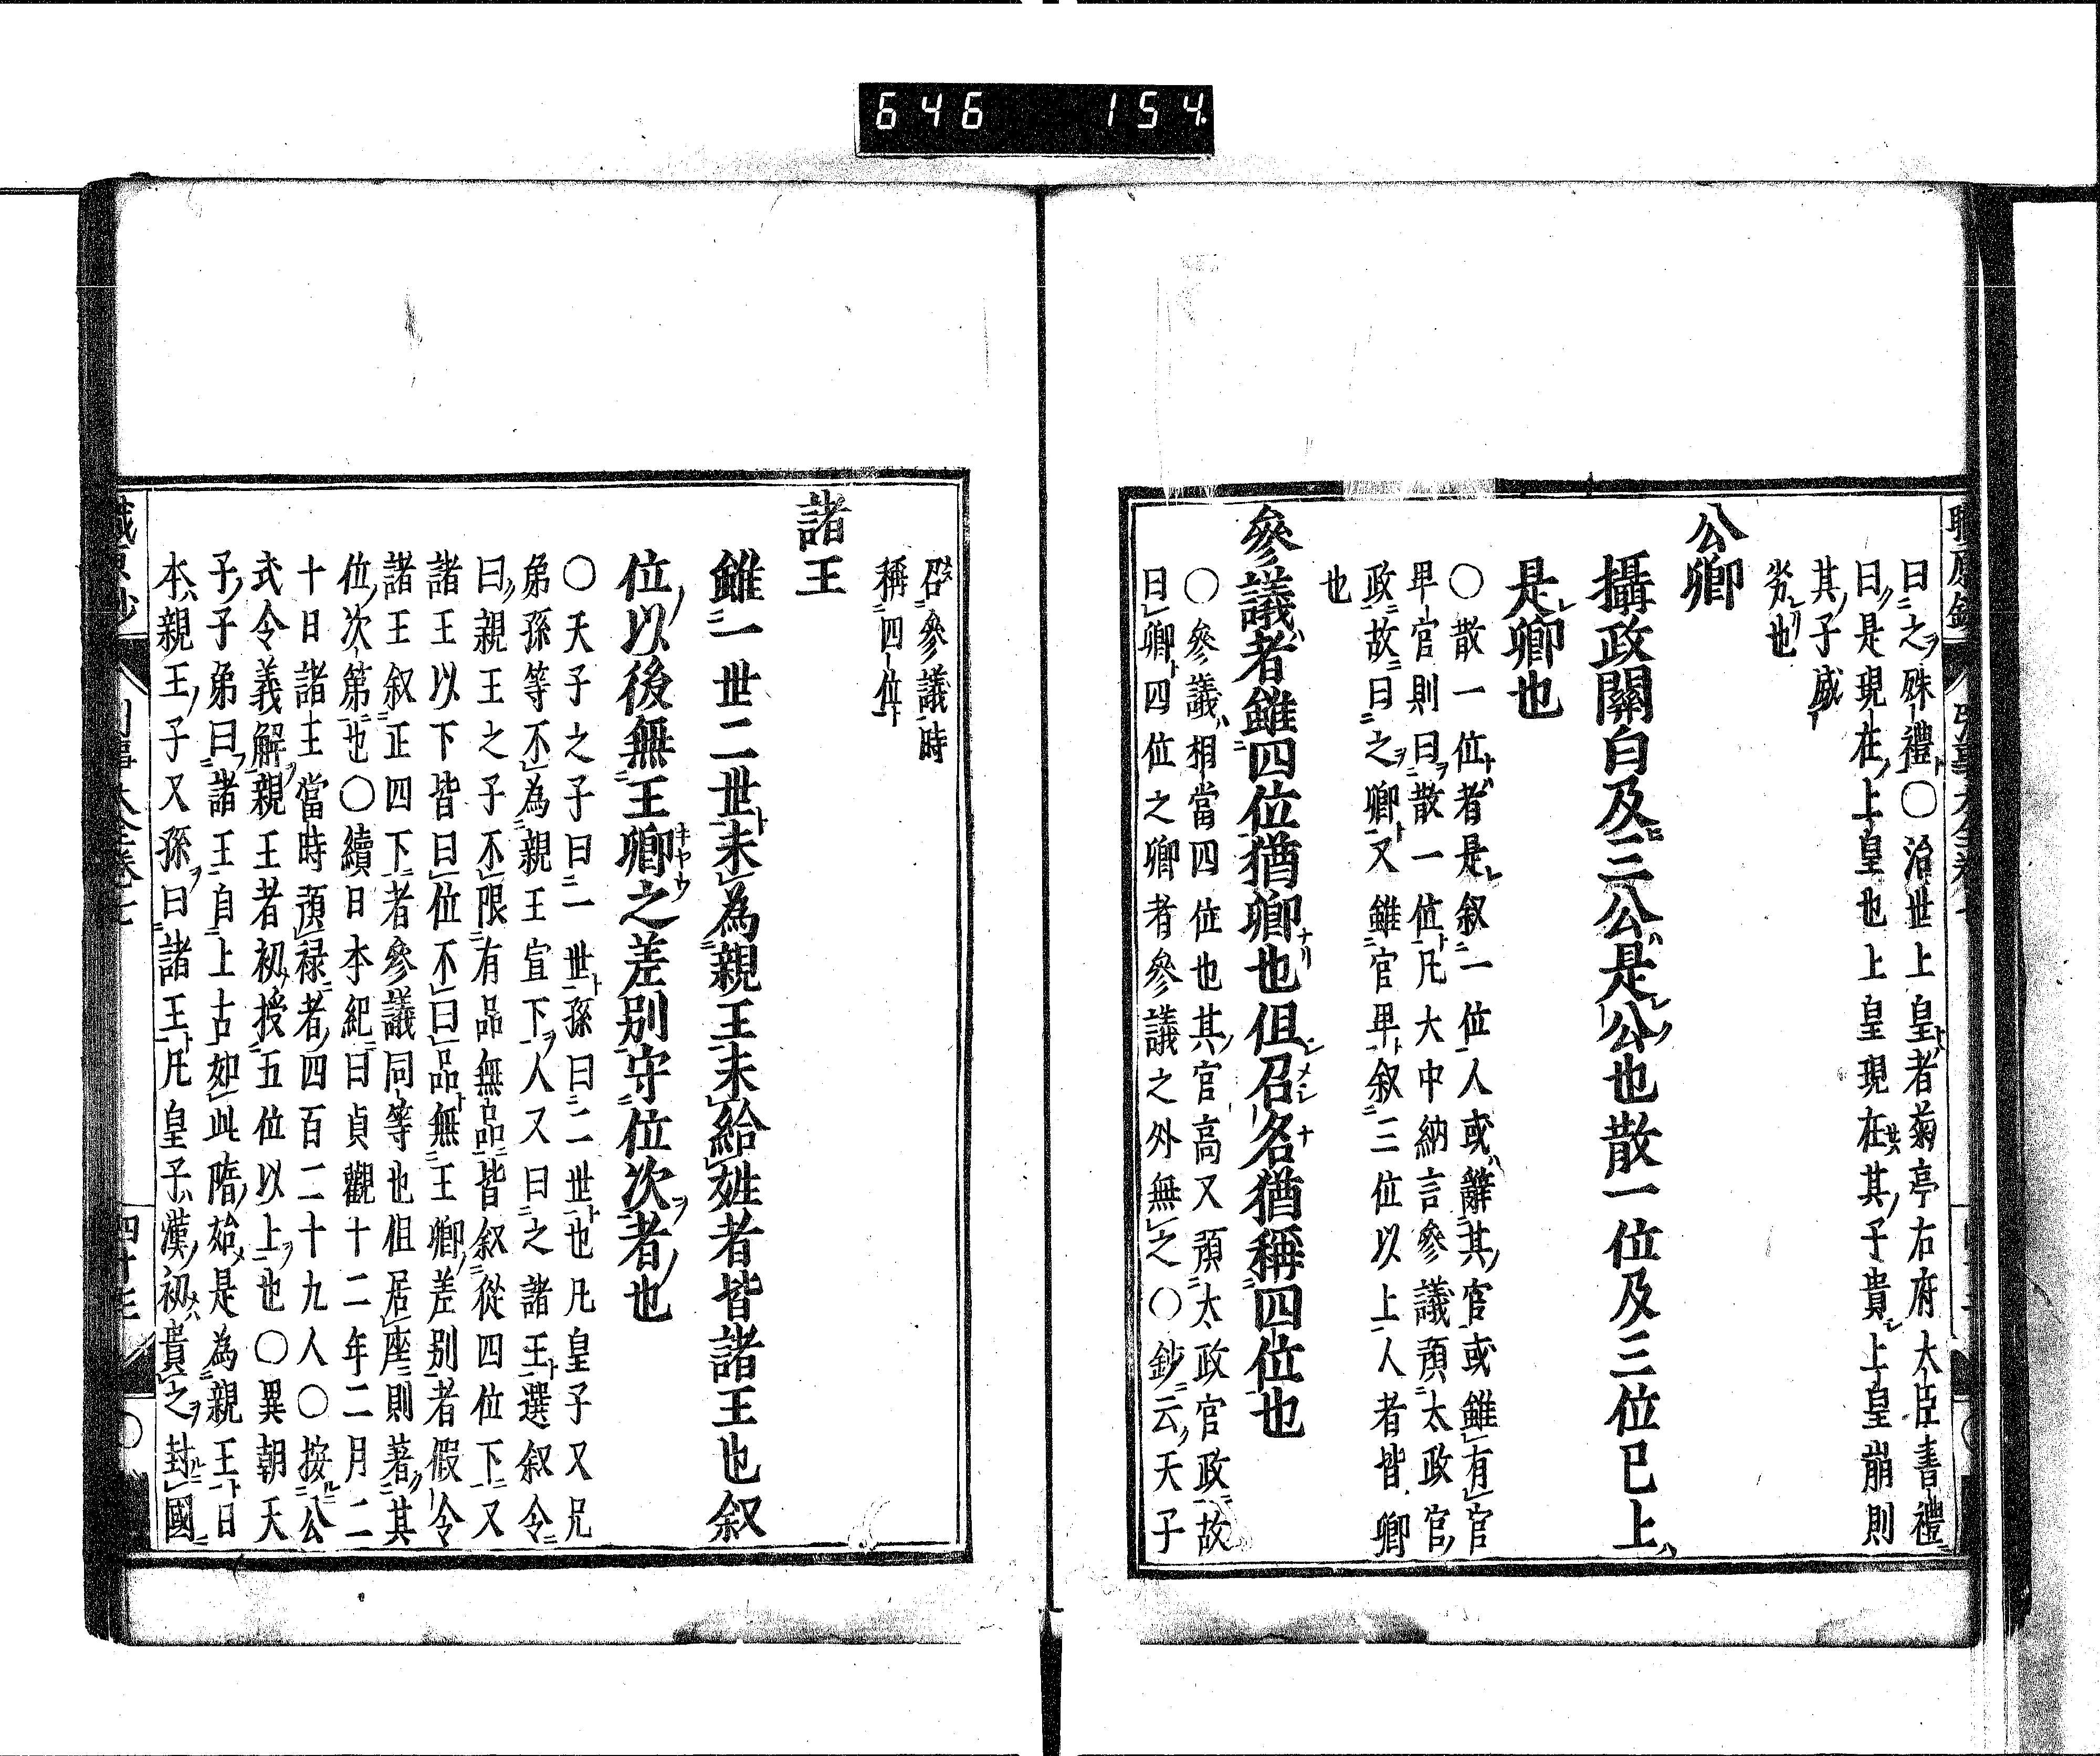 646 154
曰之殊禮〇治世上皇者菊亭右府大臣書禮
曰是現在上皇也上皇現在其子貴上皇崩則
其子威
劣也
公卿
攝政關白及三公是公也散一位及三位已上
是卿也
〇散一位者是叙一位人或辭其官或雖有官
卑官則曰散一位凡大中納言參議預太政官
政故曰之卿又雖官卑叙三位以上人者皆卿
也
參議者雖四位猶卿也但召名猶稱四位也
〇參議相當四位也其官高又預太政官政故
曰卿四位之卿者參議之外無之〇鈔云天子
召參議時
稱四位
諸王
雖一世二世未為親王未給姓者皆諸王也叙
位以後無王卿之差別守位次者也
〇天子之子曰一世孫曰二世也凡皇子又兄
弟孫等不為親王宣下人又曰之諸王選叙令
曰親王之子不限有品無品皆叙從四位下又
諸王以下皆曰位不曰品無王卿差別者假令
諸王叙正四下者參議同等也但居座則著其
位次第也〇續日本紀曰貞觀十二年二月二
十日諸王當時預禄者四百二十九人〇按公
式令義解親王者初授五位以上也〇異朝天
子子弟曰諸王自上古如此隋始是為親王日
本親王子又孫曰諸王凡皇子漢初貴之封國